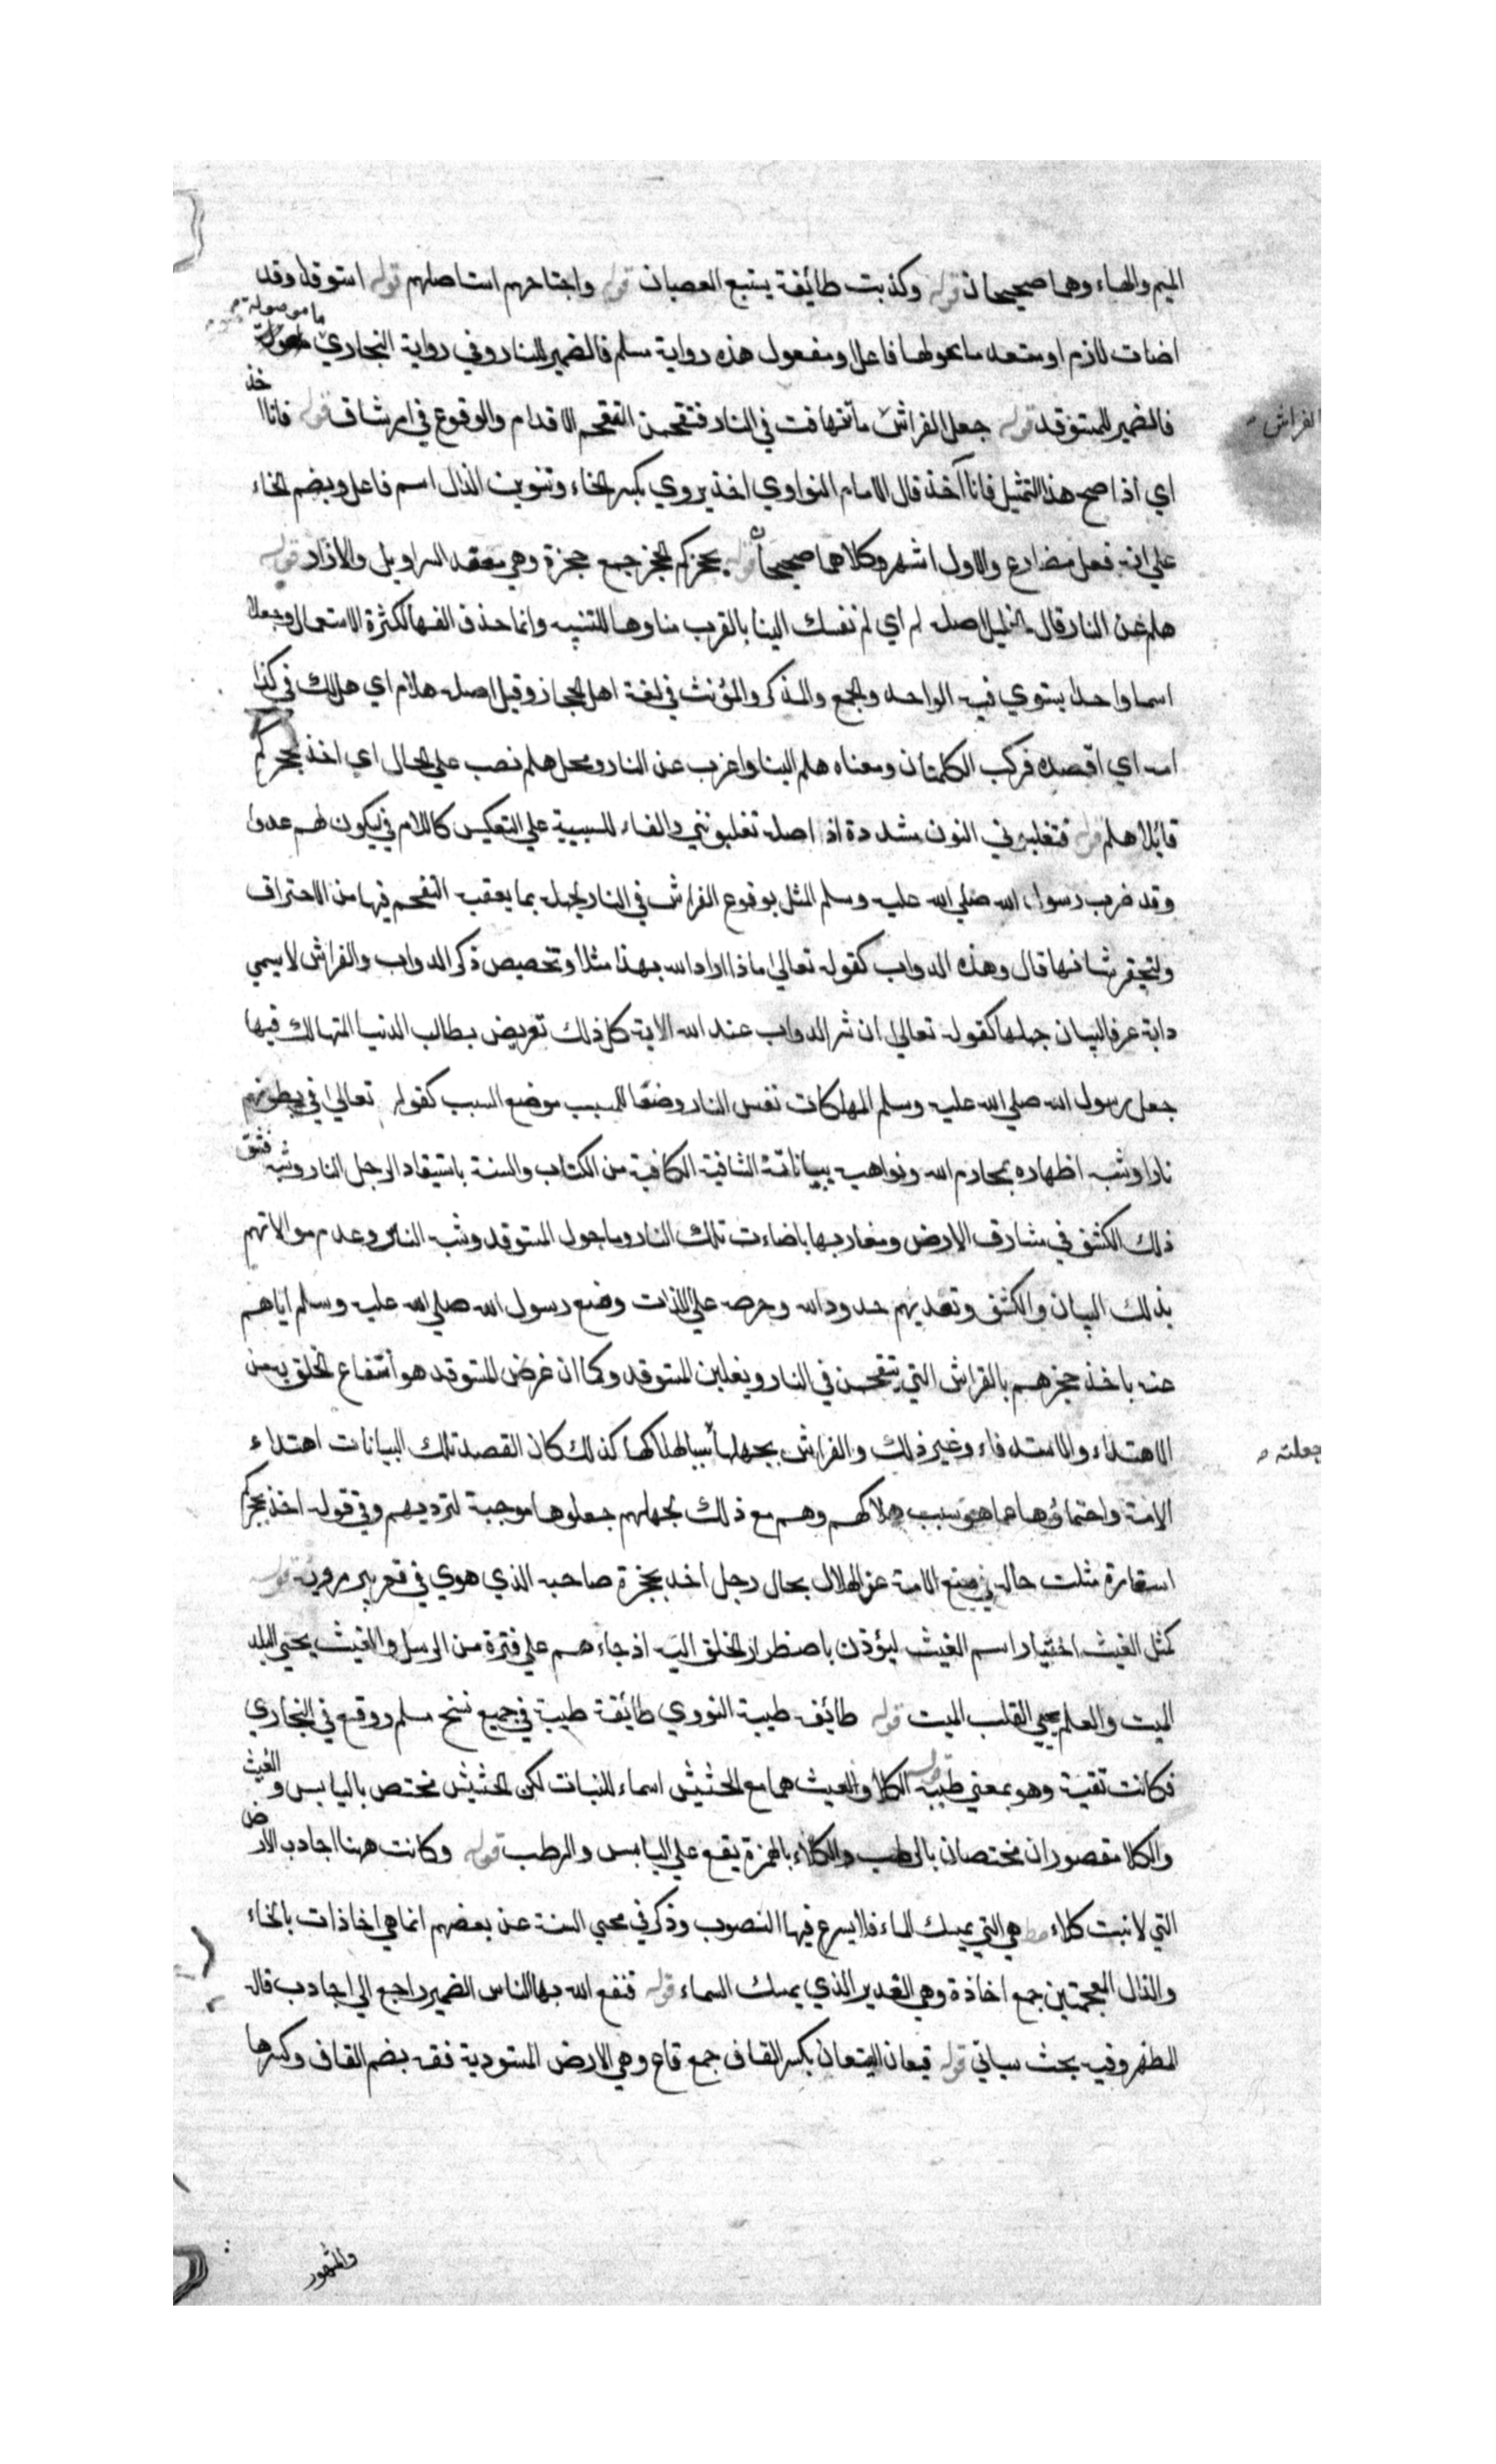 الميم والهاء وهما صحيحان قوله وكذبت طائفة يتبع العصيان قوله واجتاحهم استاصلهم قوله استوقد وقد
ما موصولة
اضات لازم او متعد ما حولها فاعل او مفعول هذه رواية مسلم فالضمير للنار وفي رواية البخاري
فالضمير للمستوقد قوله جعل الفراش ما تتهافت في النار فتقحمن التقحم الاقدام والوقوع في امر شاق قوله فانا اخذ
الفراش
اي اذا صح هذا التمثيل فانا آخذ قال الامام النواوي اخذ يروي بكسر الخاء وتنوين الذال اسم فاعل وبضم الخاء
علي انه فعل مضارع والاول اشهر وكلاهما صحيحان قوله بحجزكم الحجز جمع حجزة وهي معقد السراويل والازار قوله
هلم عن النار قال الخليل اصله لم اي لم نفسك الينا بالقرب منا وها للتنبيه وانما حذف الفها لكثرة الاستعمال وجعلا
اسما واحدا يستوي فيه الواحد والجمع والمذكر والمؤنث في لغة اهل الحجاز وقيل اصله هلام اي هل لك في كذا
امه اي اقصده فركب الكلمتان ومعناه هلم الينا واعزب عن النار ومحل هلم نصب علي الحال اي اخذ بحجزكم
قايلا هلم قوله فتغلبوني النون مشددة اذ اصله تغلبونني والفاء للسببية علي التعكيس كاللام في ليكون لهم عدوا
وقد ضرب رسول الله صلي الله عليه وسلم المثل بوقوع الفراش في النار لجهله بما يعقب التقحم فيها من الاحتراق
ولتحقير شانها قال وهذه الدواب كقوله تعالي ماذا اراد الله بهذا مثلا وتخصيص ذكر الدواب والفراش لا يسمي
دابة عرفا لبيان جهلها كقوله تعالي ان شر الدواب عند الله الاية كل ذلك تعريض بطالب الدنيا المتهالك فيها
جعل رسول الله صلي الله عليه وسلم المهلكات نفس النار وضعا للمسبب موضع السبب كقوله تعالي في بطونهم
نارا وشبه اظهاره بمحارم الله ونواهيه ببياناته الشافية الكافية من الكتاب والسنة باستيقاد الرجل النار وشبه
ذلك الكشف في مشارق الارض ومغاربها باضاءت تلك النار وما حول المستوقد وشبه الناس وعدم موالاتهم
بذلك البيان والكشف وتعديهم حدود الله وحرصه علي اللذات ومنع رسول الله صلي الله عليه وسلم اياهم
عنه باخذ حجزهم بالفراش التي يتقحمن في النار ويغلبن المستوقد وكما ان غرض المستوقد هو انتفاع الخلق به من
الاهتداء والاستدفاء وغير ذلك والفراش بجهلها سببا لهلاكها كذلك كان القصد تلك البيانات اهتداء
جعلته
الامة واحتماؤها عما هو سبب هلاكهم وهم مع ذلك لجهلهم جعلوها موجبة لترديهم وفي قوله اخذ بحجزكم
استعارة مثلت حاله في منع الامة عن الهلاك بحال رجل اخذ بحجزة صاحبه الذي هوي في قعر بير قوله
كمثل الغيث اختيار اسم الغيث ليؤذن باضطرار الخلق اليه اذ جاءهم علي فترة من الرسل والغيث يحيي البلد
الميت والعلم يحيي القلب الميت قوله طائفة طيبة النووي طائفة طيبة في جميع نسخ مسلم ووقع في البخاري
فكانت نقية وهو بمعني طيبة قوله الكلا والعيث هما مع الحشيش اسماء للنبات لكن الحشيش مختص باليابس والغيث
والكلا مقصوران مختصان بالرطب والكلاء بالهمزة يقع علي اليابس والرطب قوله وكانت هنا اجادب الارض
التي لا نبت كلاء هي التي يمسك الماء فلا يسرع فيها النصوب وذكر في محيي السنة عن بعضهم انما هي اخاذات بالخاء
والذال المعجمتين جمع اخاذة وهي الغدير الذي يمسك السماء قوله فنفع الله بها الناس الضمير راجع الي اجادب قاله
المظهر وفيه بحث سياتي قوله قيعان القيعان بكسر القاف جمع قاع وهي الارض المستوية فقه بضم القاف وكسرها
والمشهور